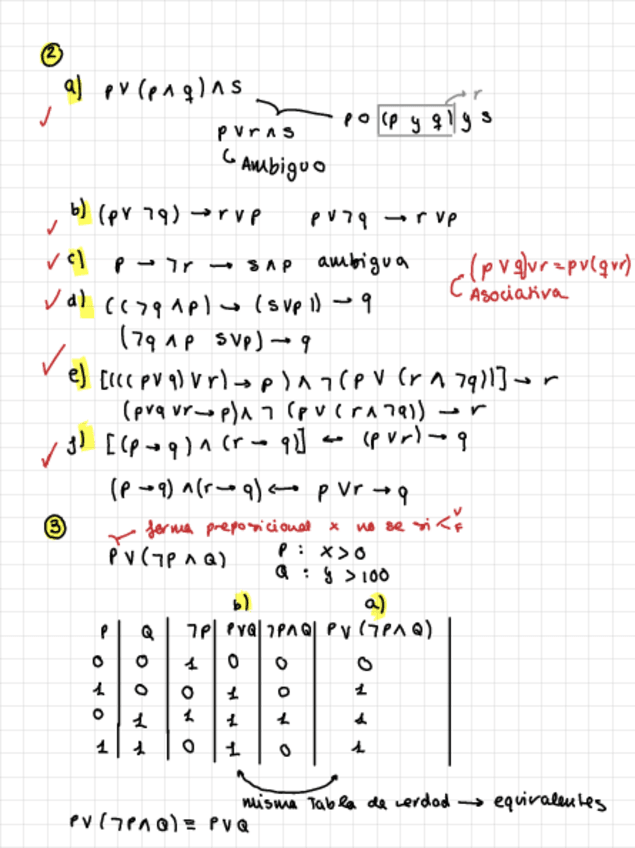 ②
a) p ∨ (p ∧ q) ∧ s
p o (p y q) y s
r
p ∨ r ∧ s
Ambiguo
b) (p ∨ ¬q) → r ∨ p p ∨ ¬q → r ∨ p
c) p → ¬r → s ∧ p ambigua
(p ∨ q) ∨ r = p ∨ (q ∨ r)
Asociativa
d) ((¬q ∧ p) → (s ∨ p)) → q
(¬q ∧ p s ∨ p) → q
e) [(((p ∨ q) ∨ r) → p) ∧ ¬(p ∨ (r ∧ ¬q))] → r
(p ∨ q ∨ r → p) ∧ ¬ (p ∨ (r ∧ ¬q)) → r
f) [(p → q) ∧ (r → q)] ↔ (p ∨ r) → q
(p → q) ∧ (r → q) ↔ p ∨ r → q
③
forma preposicional x no se si < V F
P ∨ (¬P ∧ Q) P : x > 0
Q : y > 100
b) a)
P Q ¬P P∨Q ¬P∧Q P ∨ (¬P ∧ Q)
0 0 1 0 0 0
1 0 0 1 0 1
0 1 1 1 1 1
1 1 0 1 0 1
misma Tabla de verdad → equivalentes
P ∨ (¬P ∧ Q) ≡ P ∨ Q